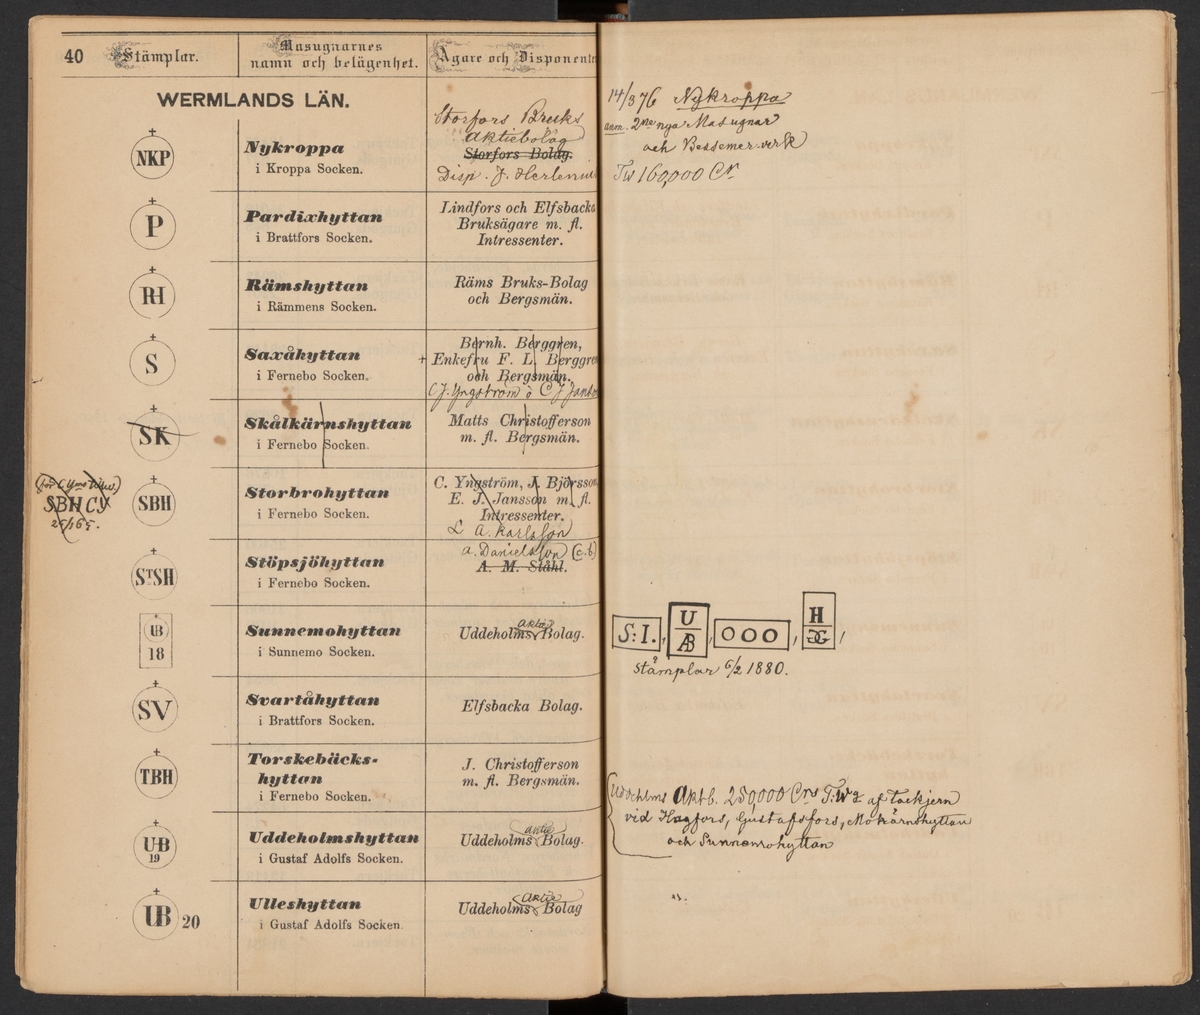 40 Stämplar. Masugnarnes namn och belägenhet. Ägare och Disponenter
WERMLANDS LÄN.
Storfors Bruks
Aktiebolag
NKP Nykroppa Storfors Bolag.
i Kroppa Socken. Disp. J. Herlenius
P Pardixhyttan Lindfors och Elfsbacka
i Brattfors Socken. Bruksägare m. fl.
Intressenter.
RH Rämshyttan Räms Bruks-Bolag
i Rämmens Socken. och Bergsmän.
S Saxåhyttan Bernh. Berggren,
+ Enkefru F. L. Berggren
i Fernebo Socken. och Bergsmän.
C J. Yngström o C J Janson
SK Skålkärnshyttan Matts Christofferson
i Fernebo Socken. m. fl. Bergsmän.
SBH CY
SBH Storbrohyttan C. Yngström, J. Björsson
E. J. Jansson m. fl.
i Fernebo Socken. Intressenter.
L A. Karlsson
STSH Stöpsjöhyttan A. Danielsson (c.b)
A. M. Ståhl.
i Fernebo Socken.
UB 18 Sunnemohyttan Uddeholms Aktie Bolag.
i Sunnemo Socken.
SV Svartåhyttan Elfsbacka Bolag.
i Brattfors Socken.
TBH Torskebäcks-
hyttan J. Christofferson
m. fl. Bergsmän.
i Fernebo Socken.
UB 19 Uddeholmshyttan Uddeholms Aktie Bolag.
i Gustaf Adolfs Socken.
UB 20 Ulleshyttan Uddeholms Aktie Bolag
i Gustaf Adolfs Socken.
14/3 76 Nykroppa
anm. 2ne nya Masugnar
och Bessemerverk
Tw 160,000 Cr
S:I., U ÆB, OOO, H GG,
stämplar 6/2 1880.
Uddehlms Aktb. 250,000 Cnr T:wg af Tackjern
vid Hagfors, Gustafsfors, Mokärnshyttan
och Sunnemohyttan